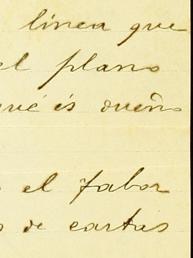 línea que
el plano
qué és dueño
el fabor
de cartas